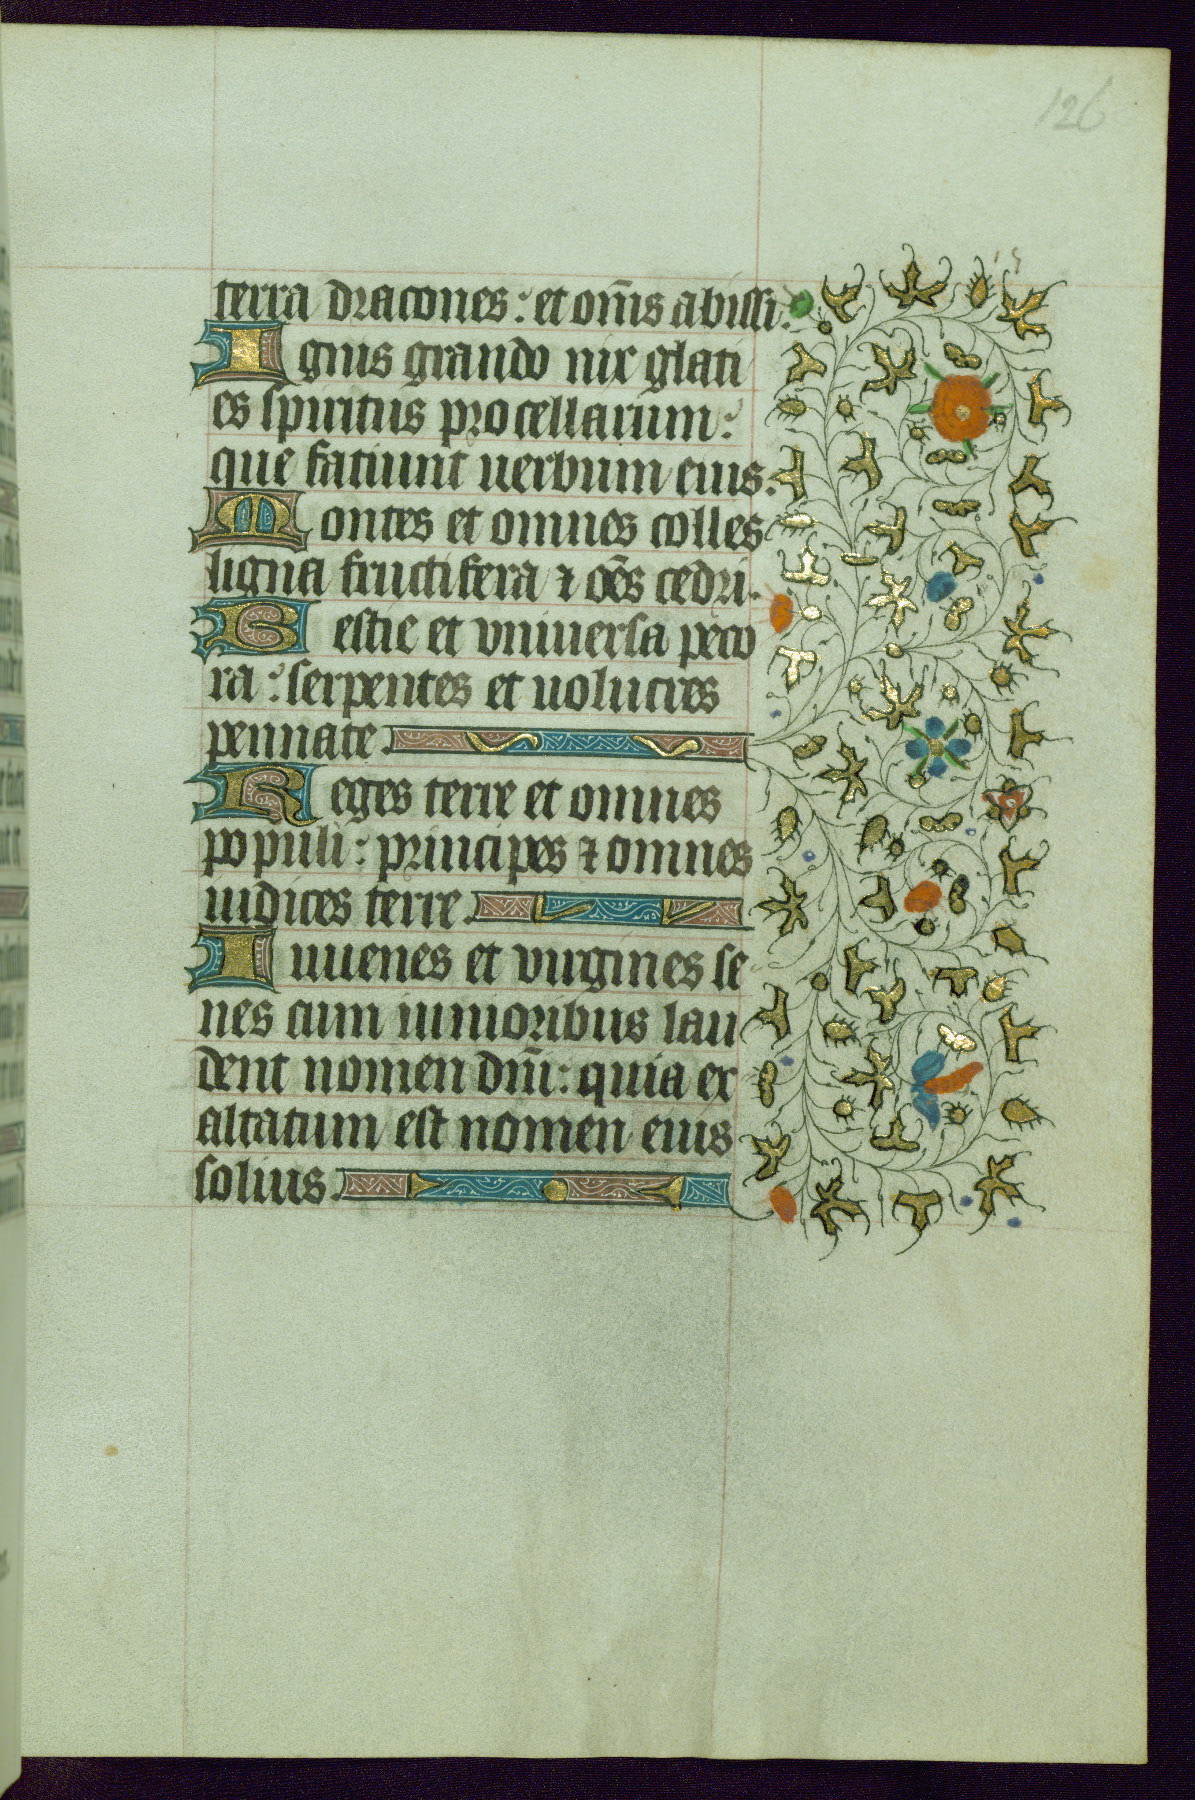 126
terra dracones: et om̄s abissi.
Ignis grando nix glati
es spiritus procellarum:
que faciunt uerbum eius.
Montes et omnes colles
ligna fructifera ⁊ oēs cedri.
Bestie et vniuersa peco
ra: serpentes et uolucres
pennate.
Reges terre et omnes
populi: principes ⁊ omnes
iudices terre.
Iuuenes et virgines se
nes cum iunioribus lau
dent nomen dn̄i: quia ex
altatum est nomen eius
solius.